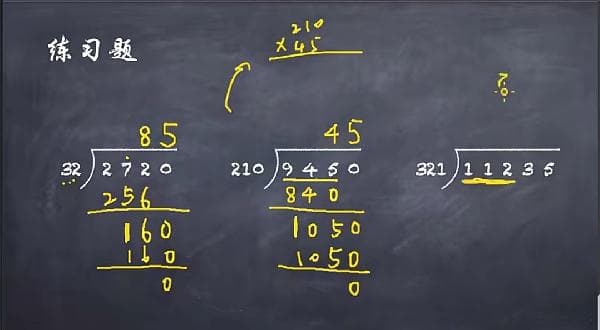 练习题
210
×45
?
85
32)2720
256
160
160
0
45
210)9450
840
1050
1050
0
321)11235